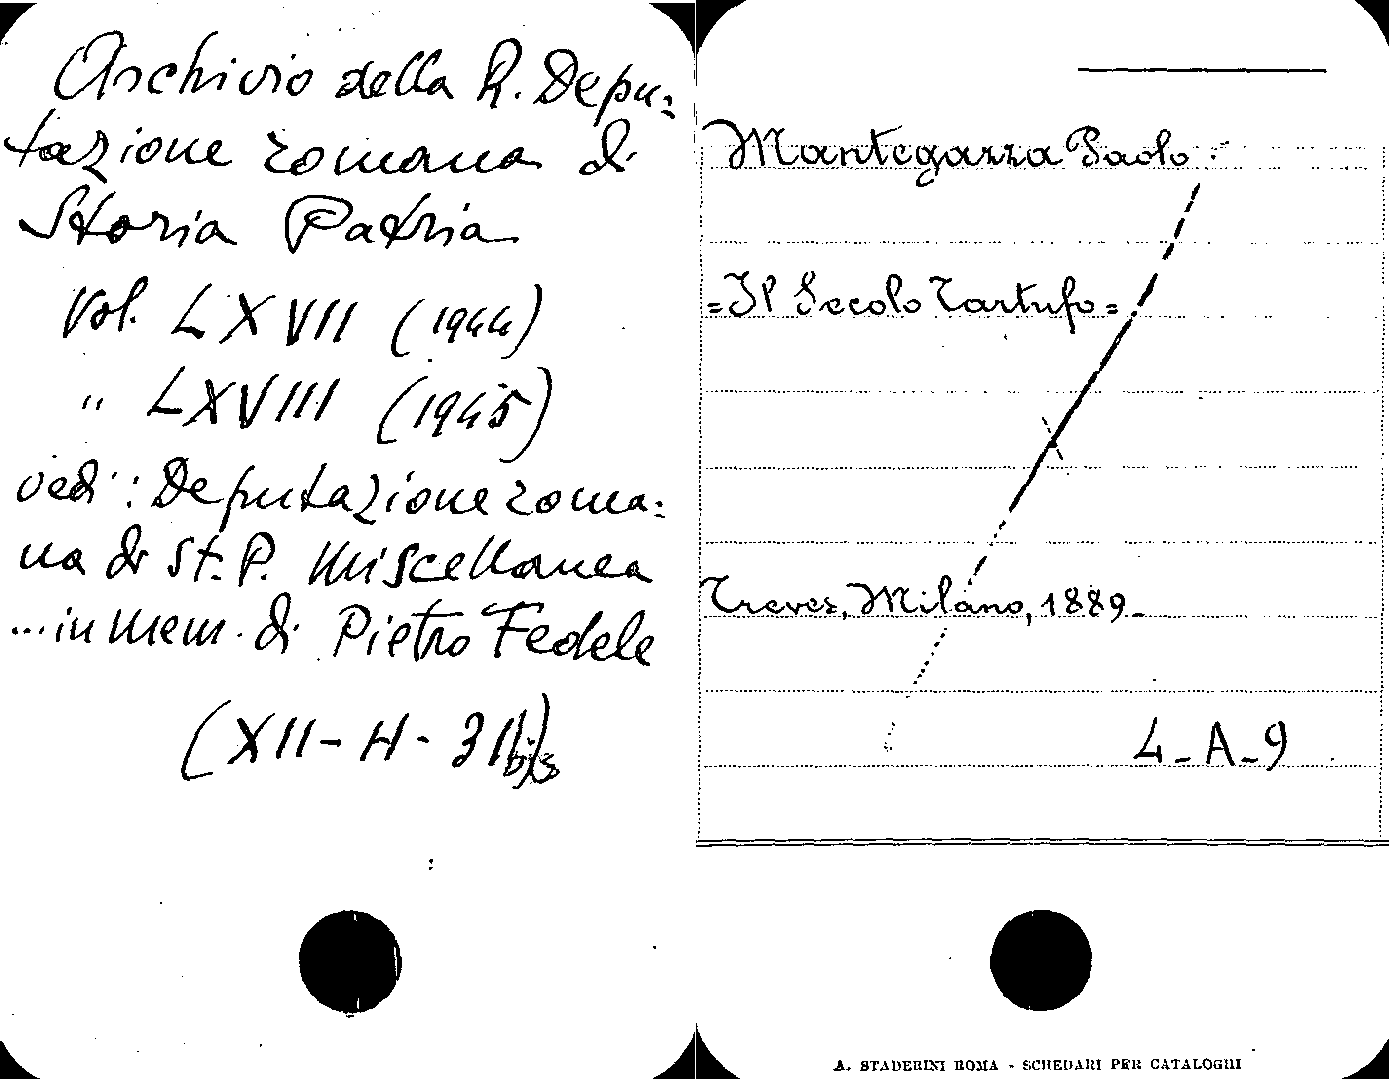 Archivio della R. Depu=
tazione romana di
Storia Patria
Vol. LXVII (1944)
" LXVIII (1945)
vedi: Deputazione roma=
na di St. P. Miscellanea
...in mem. di Pietro Fedele
(XII-H-31bis)
Mantegazza Paolo.
=Il Secolo Tartufo=
Treves, Milano, 1889-
4-A-9
A. STADERINI ROMA - SCHEDARI PER CATALOGHI